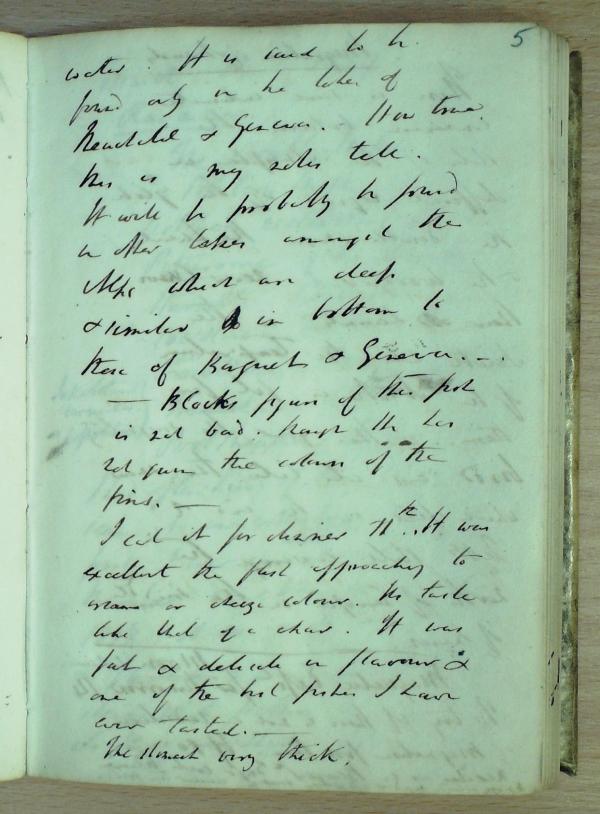 5
water. It is said to be
found only in the lakes of
Neuchatel & Geneva. How true
this is my notes tell.
It will be probably be found
in other lakes amongst the
Alps which are deep
& similar in bottom to
those of & Geneva. ...
— Blocks figure of this fish
is not bad. though He has
not given the colours of the
fins. —
I eat it for dinner 11th. It was
excellent the flesh approaching to
cream or cheese colour. Its taste
like that of a char. It was
fat & delicate in flavour &
one of the best fishes I have
ever tasted. —
The stomach very thick.